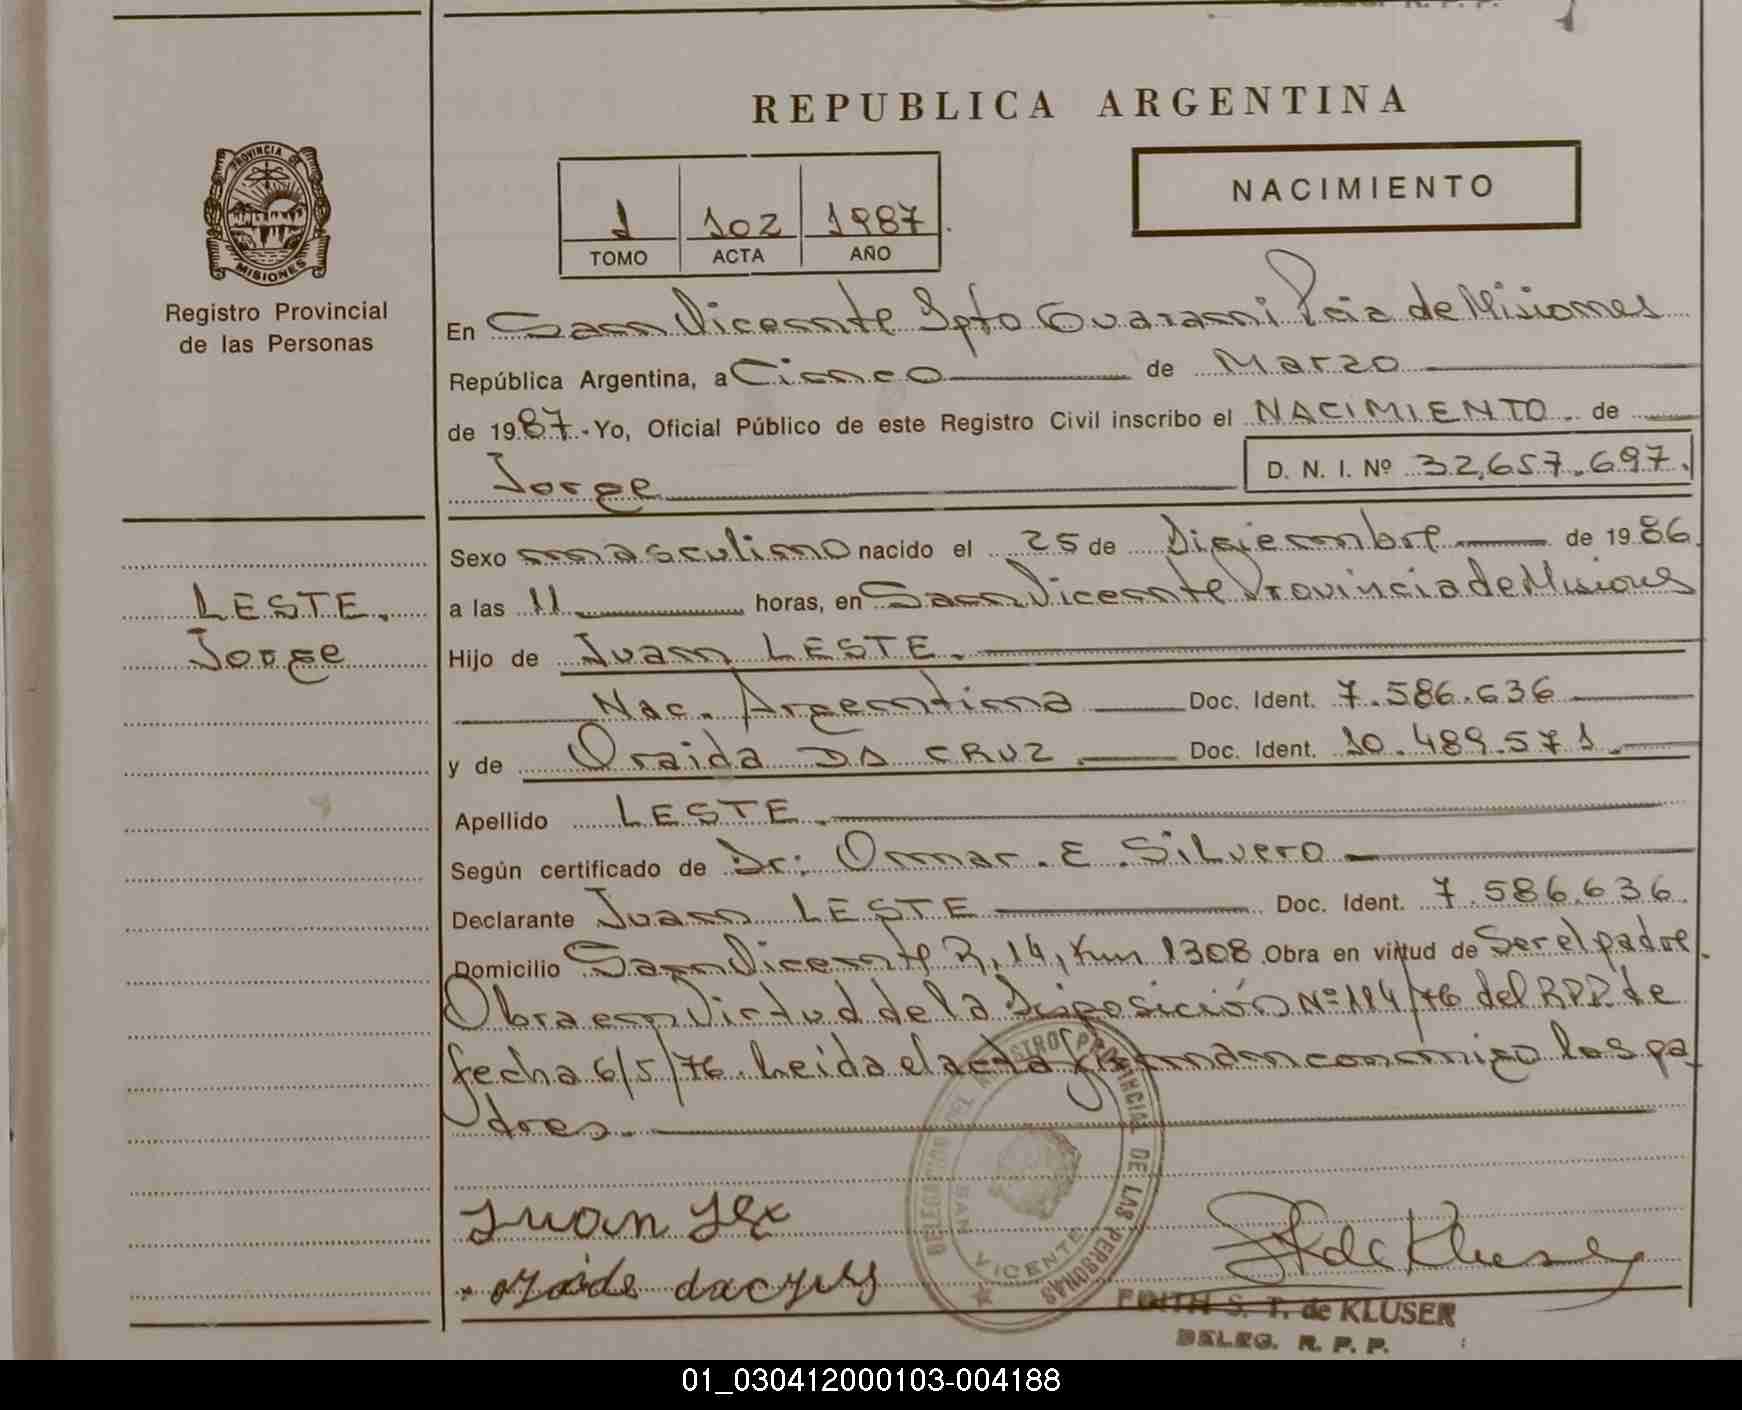 REPUBLICA ARGENTINA
NACIMIENTO
1 102 1987
TOMO ACTA AÑO
PROVINCIA DE
MISIONES
Registro Provincial
de las Personas
En San Vicente Dpto Guarani Pcia de Misiones
República Argentina, a Cinco de Marzo
de 1987.-Yo, Oficial Público de este Registro Civil inscribo el NACIMIENTO. de
Jorge D. N. I. Nº 32,657.697.
Sexo masculino nacido el 25 de Diciembre de 1986.
LESTE.
Jorge
a las 11 horas, en San Vicente Provincia de Misiones
Hijo de Juan LESTE.
Nac. Argentina Doc. Ident. 7.586.636
y de Oraida DA CRUZ. Doc. Ident. 10.489.571.
Apellido LESTE.
Según certificado de Dr: Omar. E. Silvero
Declarante Juan LESTE Doc. Ident. 7.586.636.
Domicilio San Vicente R, 14, Km 1308. Obra en virtud de Ser el padre.
Obra en Virtud de la Disposición Nº 114/76 del R.P.P. de
fecha 6/5/76. Leida el acta firman conmigo los pa
dres.
DELEGACION DEL REGISTRO PROVINCIAL DE LAS PERSONAS
SAN VICENTE
Juan
de Kluser
S. T. de KLUSER
DELEG. R. P. P.
01_030412000103-004188